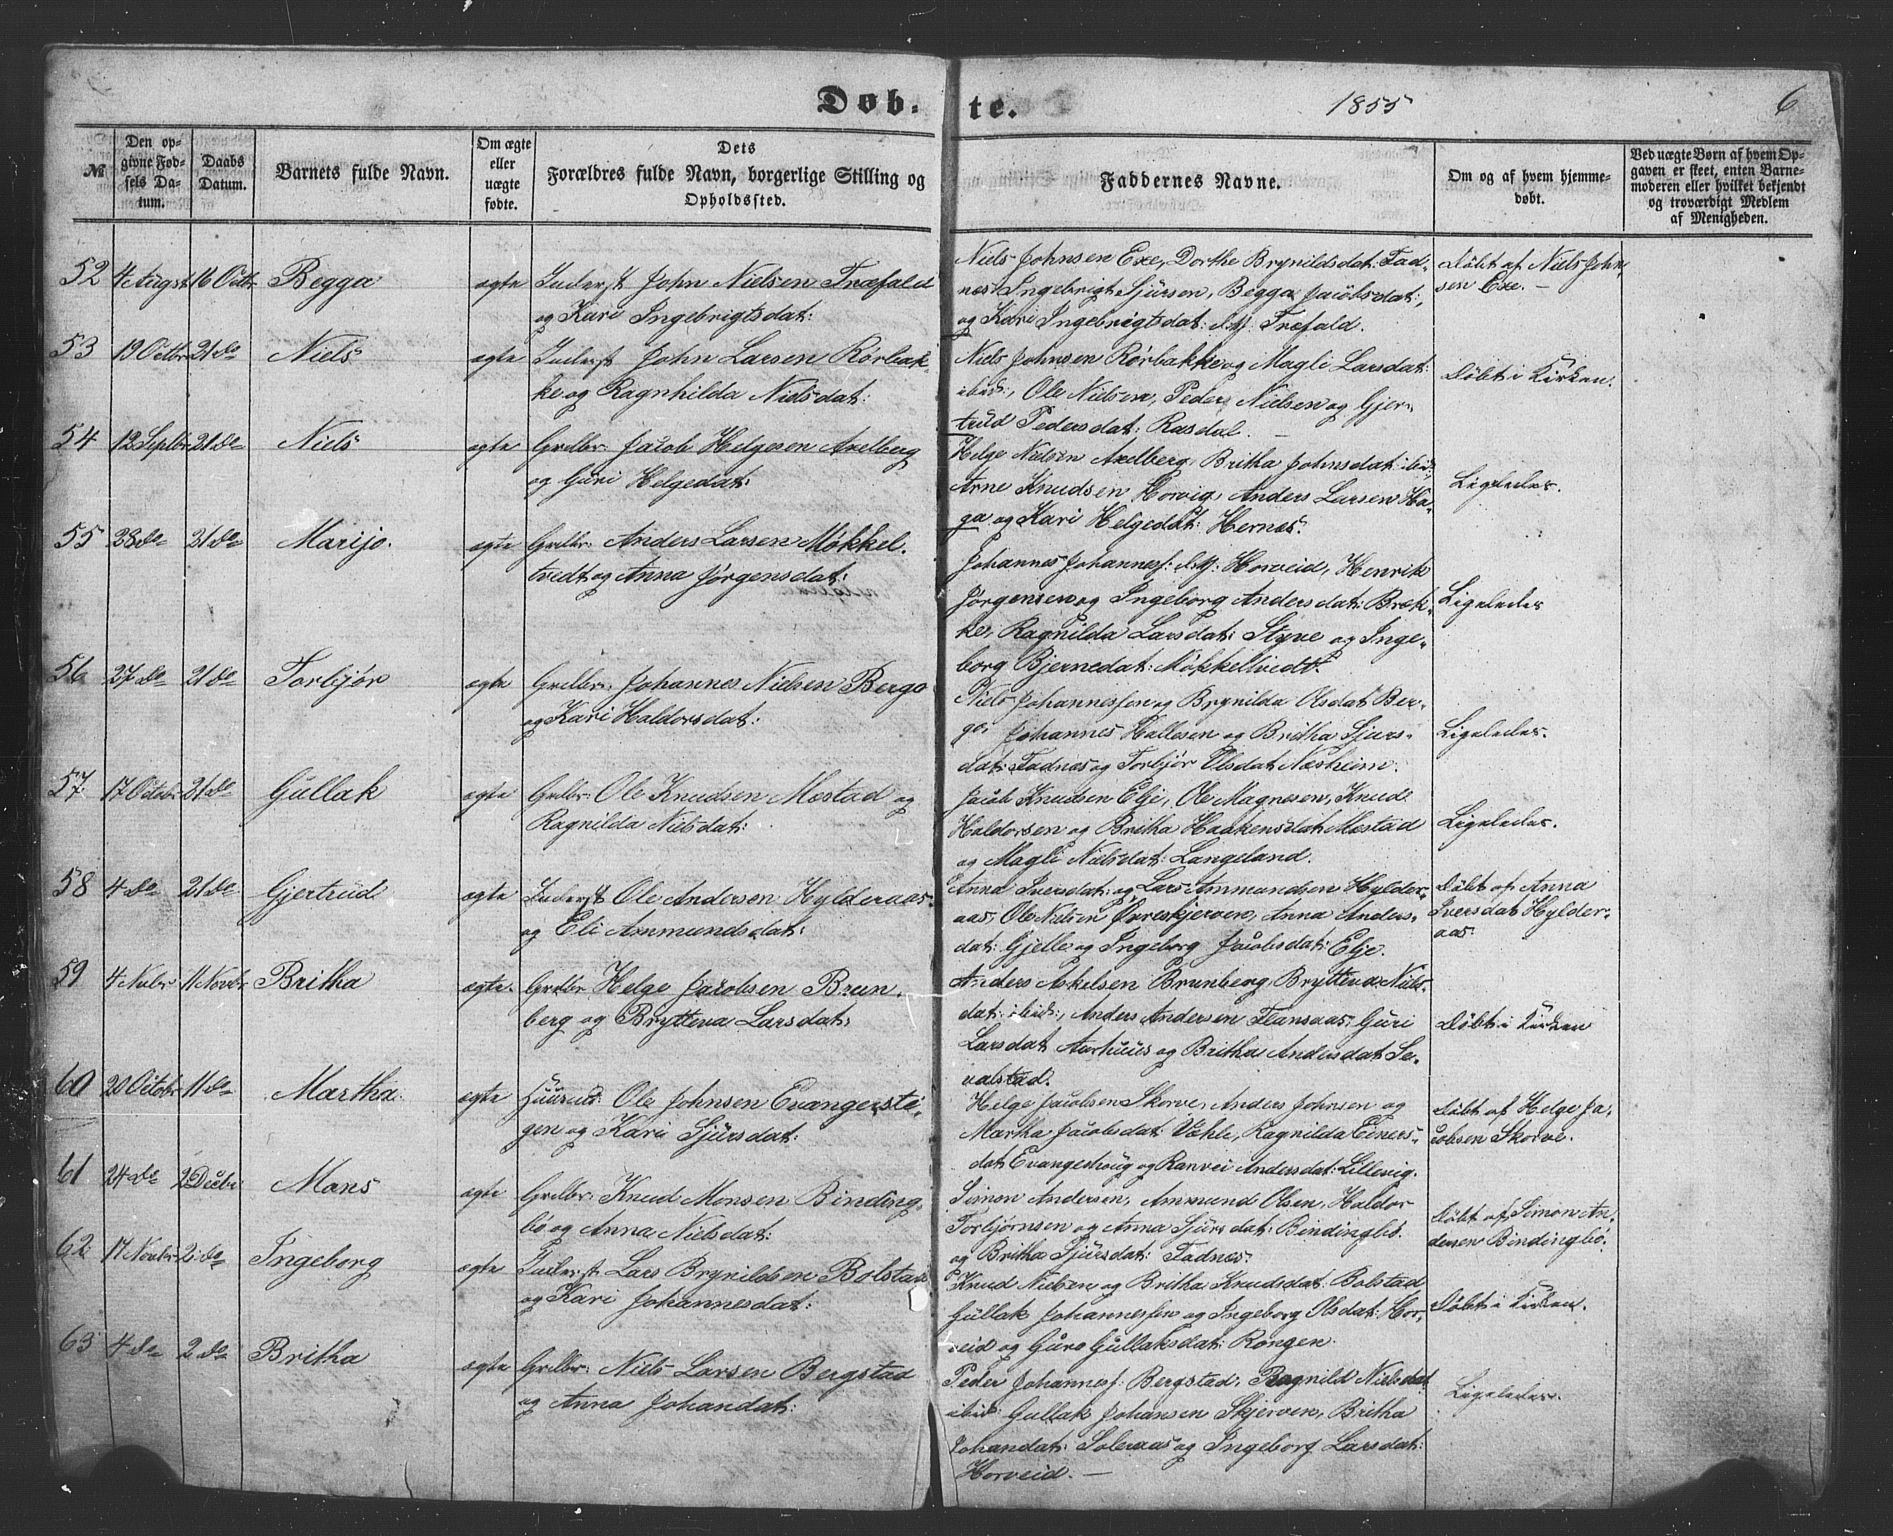 Døb-te. 1855 6
№
Den opgivne Fødsels Datum.
Daabs Datum.
Barnets fulde Navn.
Om ægte eller uægte fødte.
Dets Forældres fulde Navn, borgerlige Stilling og Opholdssted.
Faddernes Navne.
Om og af hvem hjemmedøbt.
Ved uægte Børn af hvem Opgaven er skeet, enten Barnemoderen eller hvilket bekjendt og troværdigt Medlem af Menigheden.
52 4 Augst 16 Octbr Begga ægte Inderst John Nielsen Træfald
og Kari Ingebrigtsdat:
Niels Johnsen Exe, Dorthe Brynildsdat: Fad-
nes, Ingebrigt Sjursen, Begga Jacobsdat:,
og Kari Ingebrigtsdat: Træfald.
Døbt af Niels John-
sen Exe. —
53 19 Octbr 21 do Niels ægte Inderst John Larsen Rørbak-
ke og Ragnhilda Nielsdat:
Niels Johnsen Rørbakke og Magli Larsdat:
ibid:, Ole Nielsen, Peder Nielsen og Gjer-
trud Pedersdat: Rasdal. —
Døbt i Kirken.
54 12 Septbr 21 do Niels ægte Grdbr. Jacob Helgesen Axelberg
og Guri Helgedat:
Helge Nielsen Axelberg, Britha Johnsdat: ibid:,
Arne Knudsen Horvig, Anders Larsen Ha-
ga og Kari Helgedat: Hernæs.
Ligeledes.
55 28 do 21 do Marijo. ægte Grdbr: Anders Larsen Møkkel-
tvedt og Anna Jørgensdat:
Johannes Johannesf: Horveid, Henrik
Jørgensen og Ingeborg Andersdat: Bræk-
ke, Ragnilda Larsdat: Styve og Inge-
borg Bjernedat: Møkkeltvedt.
Ligeledes
56 27 do 21 do Torbjør ægte Grdbr: Johannes Nielsen Bergo
og Kari Haldorsdat:
Niels Johannessen og Brynilda Olsdat Ber-
go, Johannes Hallesen og Britha Sjurs-
dat: Fadnes og Torbjør Olsdat Næsheim.
Ligeledes.
57 17 Octobr 21 do Gullak ægte Grdbr: Ole Knudsen Mestad og
Ragnilda Nielsdat:
Jacob Knudsen Elje, Ole Magnesen, Knud
Haldorsen og Britha Haakensdat: Mestad
og Magli Nielsdat: Langeland.
Ligeledes.
58 4 do 21 do Gjertrud ægte Inderst Ole Andersen Hylderaas
og Eli Ammundsdat:
Anna Iversdat: og Lars Ammundsen Hylder-
aas, Ole Nielsen Øvreskjerven, Anna Anders-
dat: Gjelle og Ingeborg Jacobsdat: Elje.
Døbt af Anna
Iversdat Hylder-
aas.
59 4 Nvbr 11 Novbr Britha ægte. Grdbr Helge Jacobsen Brun-
berg og Brytteva Larsdat:
Anders Askelsen Brunberg, Brytteva Niels-
dat: ibid:, Anders Andersen Flansaas, Guri
Larsdat Aarhuus og Britha Andersdat Se-
valstad.
Døbt i Kirken
60 20 Octobr 11 do Martha. ægte Huusmd: Ole Johnsen Evangerste-
gen og Kari Sjursdat:
Helge Jacobsen Skorve, Anders Johnsen og
Martha Jacobsdat: Væhle, Ragnilda Einers-
dat Evangeshoug og Ranvei Andersdat: Lillevig.
Døbt af Helge Ja-
cobsen Skorve.
61 24 do 2 Decbr Mons ægte Grdbr: Knud Monsen Binding-
bø og Anna Nielsdat:
Simon Andersen, Ammund Olsen, Haldor
Torbjørnsen og Anna Sjursdat: Bindingbø.
og Britha Sjursdat: Fadnes.
Døbt af Simon An-
dersen Bindingbø.
62 17 Novbr 2 do Ingeborg ægte Inderst Lars Brynildsen Bolstad
og Kari Johannesdat:
Knud Nielsen og Britha Knudsdat: Bolstad
Gullak Johannessen og Ingeborg Olsdat: Hor-
veid og Guro Gullaksdat: Rongen.
Døbt i Kirken.
63 4 do 2 do Britha ægte Grdbr: Niels Larsen Bergstad
og Anna Johandat:
Peder Johannesf: Bergstad, Ragnild Nielsdat
ibid: Gullak Johansen Skjerven, Britha
Johandat: Soleraas og Ingeborg Larsdat:
Horveid. —
Ligeledes.